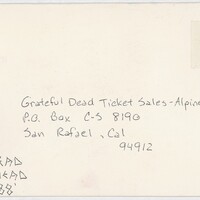 Grateful Dead Ticket Sales-Alpine
P.O. Box C-S 8190
San Rafael, Cal
94912
EAD
HEAD
88'